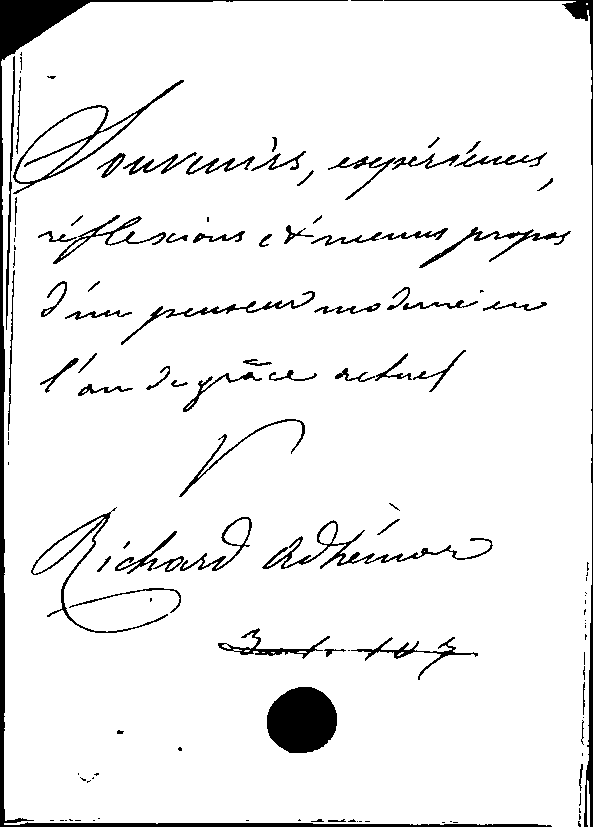 Souvenirs, expériences,
réflexions et menus propos
d'un penseur moderne en
l'an de grâce actuel
Richard Adhémar